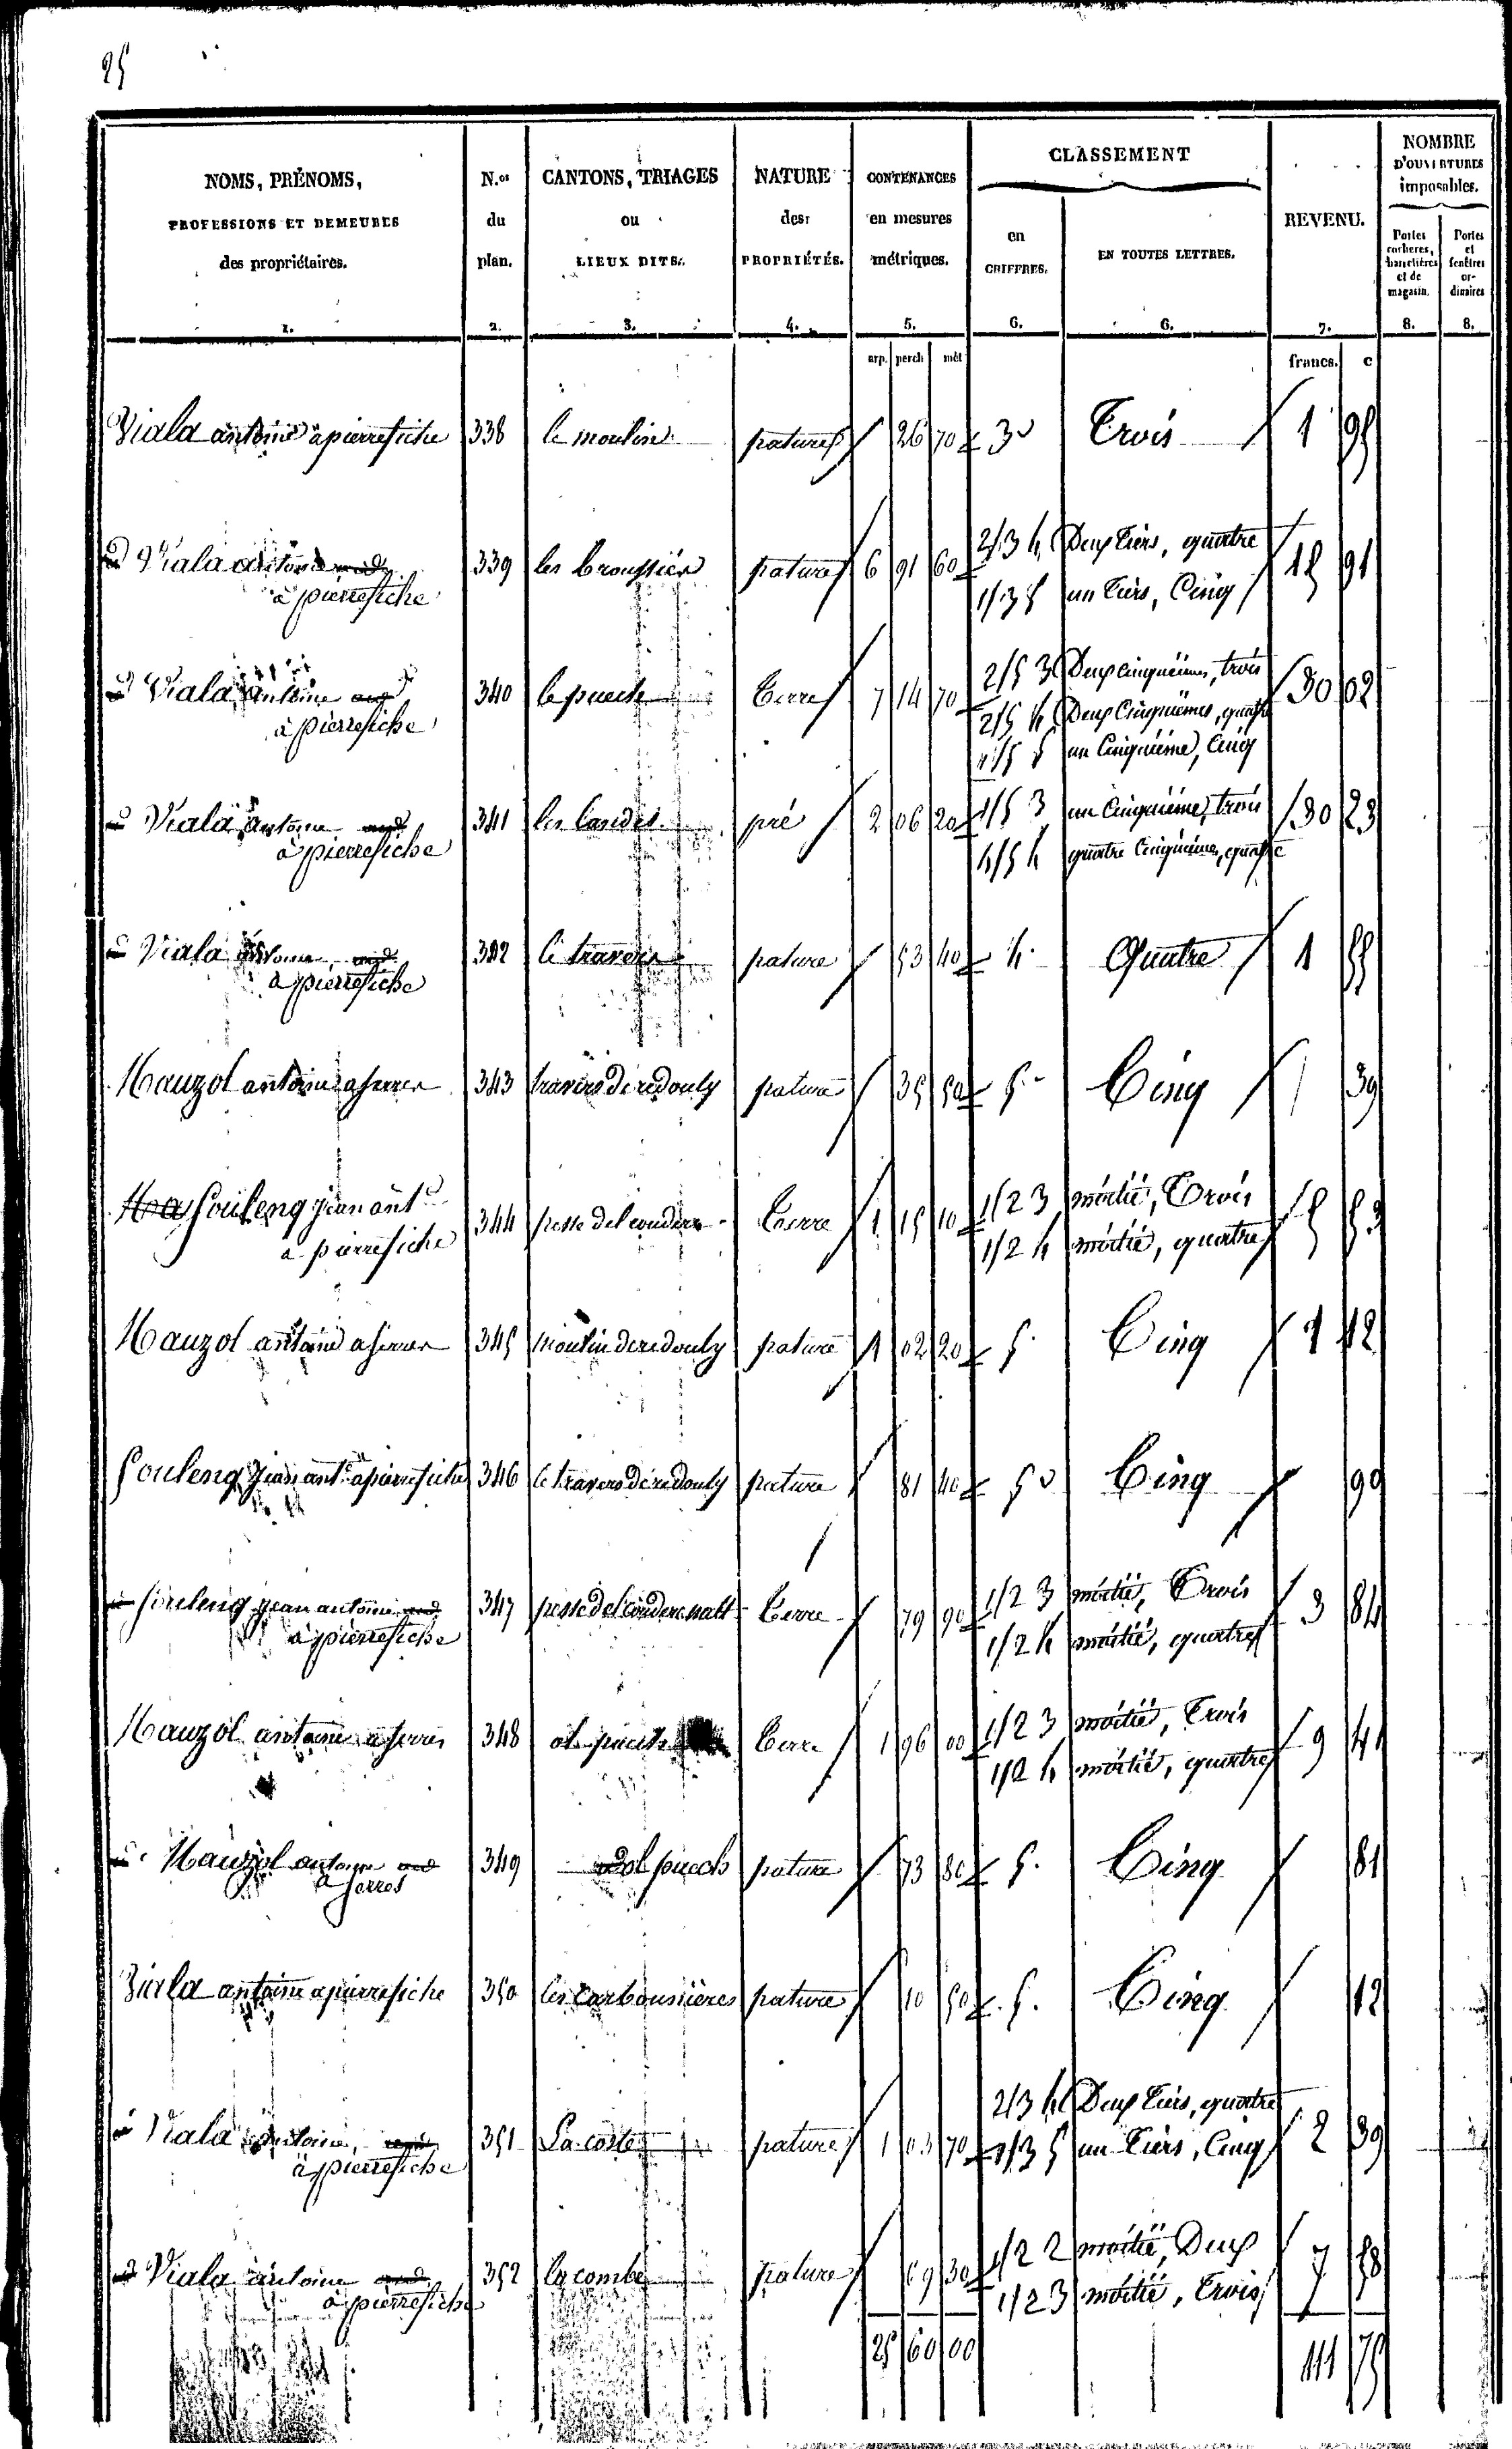 25
NOMS, PRÉNOMS, PROFESSIONS ET DEMEURES des propriétaires. 1.
N.os du plan. 2.
CANTONS, TRIAGES ou LIEUX DITS. 3.
NATURE des PROPRIÉTÉS. 4.
CONTENANCES en mesures métriques. 5.
CLASSEMENT
en CHIFFRES. 6.
EN TOUTES LETTRES. 6.
REVENU. 7.
NOMBRE D'OUVERTURES imposables.
Portes cochères, charretières et de magasin. 8.
Portes et fenêtres ordinaires 8.
arp. perch mèt francs. c
Viala antoine à pierrefiche 338 le moulin pature 26 70 3e Trois 1 95
Viala antoine 339 les broussier pature 6 91 60 2/3 4 Deux tiers, quatre 15 91
à pierrefiche 1/3 5 un tiers, Cinq
Viala antoine 340 le puech terre 7 14 70 2/5 3 Deux cinquièmes, trois 30 02
à pierrefiche 2/5 4 Deux Cinquièmes, quatre
1/5 5 un Cinquième, Cinq
Viala antoine 341 les landes pré 2 06 20 1/5 3 un Cinquième, trois 30 23
à pierrefiche 4/5 4 quatre Cinquièmes, quatre
Viala antoine 342 le travers pature 53 40 4 Quatre 1 55
à pierrefiche
Mauzol antoine a serres 343 travers de redouly pature 35 50 5 Cinq 39
Souleng jean ant. 344 pesse del couderc terre 1 15 10 1/2 3 moitié, Trois 5 53
a pierrefiche 1/2 4 moitié, quatre
Mauzol antoine a serres 345 moulin de redouly pature 1 02 20 5 Cinq 1 12
Souleng jean ant. a pierrefiche 346 le travers de redouly pature 81 40 5e Cinq 90
Souleng jean antoine 347 pesse del couderc terre 79 90 1/2 3 moitié, Trois 3 84
à pierrefiche 1/2 4 moitié, quatre
Mauzol antoine a serres 348 al puech terre 1 96 00 1/2 3 moitié, Trois 9 41
1/2 4 moitié, quatre
Mauzol antoine 349 al puech pature 73 80 5 Cinq 81
a serres
Viala antoine a pierrefiche 350 les carboussières pature 10 50 5 Cinq 12
Viala antoine 351 La coste pature 1 03 70 2/3 4 Deux tiers, quatre 2 39
à pierrefiche 1/3 5 un tiers, Cinq
Viala antoine 352 la combe pature 69 30 1/2 2 moitié, Deux 7 58
à pierrefiche 1/2 3 moitié, Trois
25 60 00 111 75